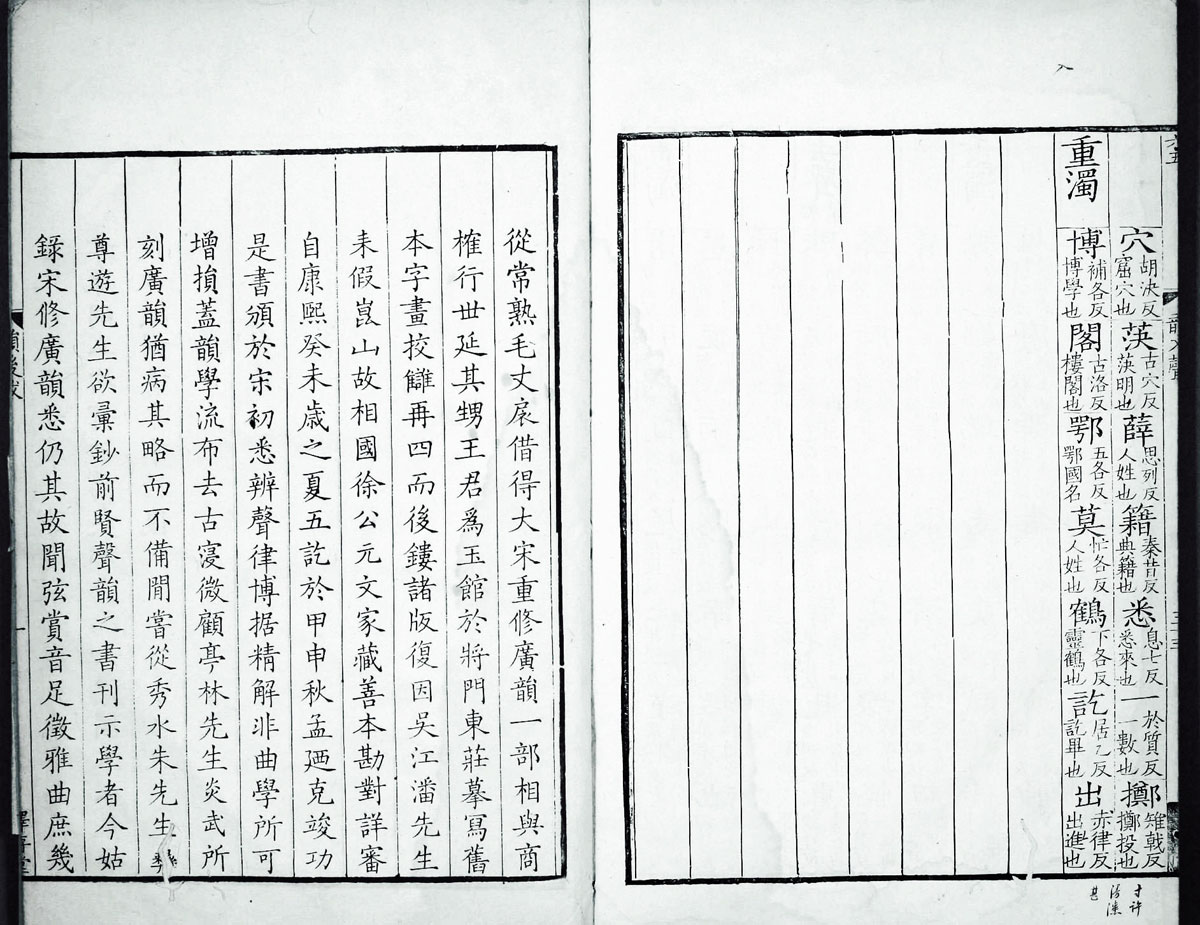 穴胡決反窟穴也 䓖古穴反䓖明也 薛思列反人姓也 籍秦昔反典籍也 悉息七反悉來也 一於質反一數也 擲雉戟反擲投也
重濁 博補各反博學也 閣古洛反樓閣也 鄂五各反鄂國名 莫忙各反人姓也 鶴下各反靈鶴也 訖居乙反訖畢也 出赤律反出進也
從常熟毛丈扆借得大宋重修廣韻一部相與商
榷行世延其甥王君為玉館於將門東莊摹寫舊
本字畫挍讎再四而後鏤諸版復因吳江潘先生
耒假崑山故相國徐公元文家藏善本勘對詳審
自康熙癸未歲之夏五訖於甲申秋孟廼克竣功
是書頒於宋初悉辨聲律博据精解非曲學所可
增損蓋韻學流布去古寖微顧亭林先生炎武所
刻廣韻猶病其略而不備間嘗從秀水朱先生
尊遊先生欲彙鈔前賢聲韻之書刊示學者今姑
錄宋修廣韻悉仍其故聞弦賞音足徵雅曲庶幾